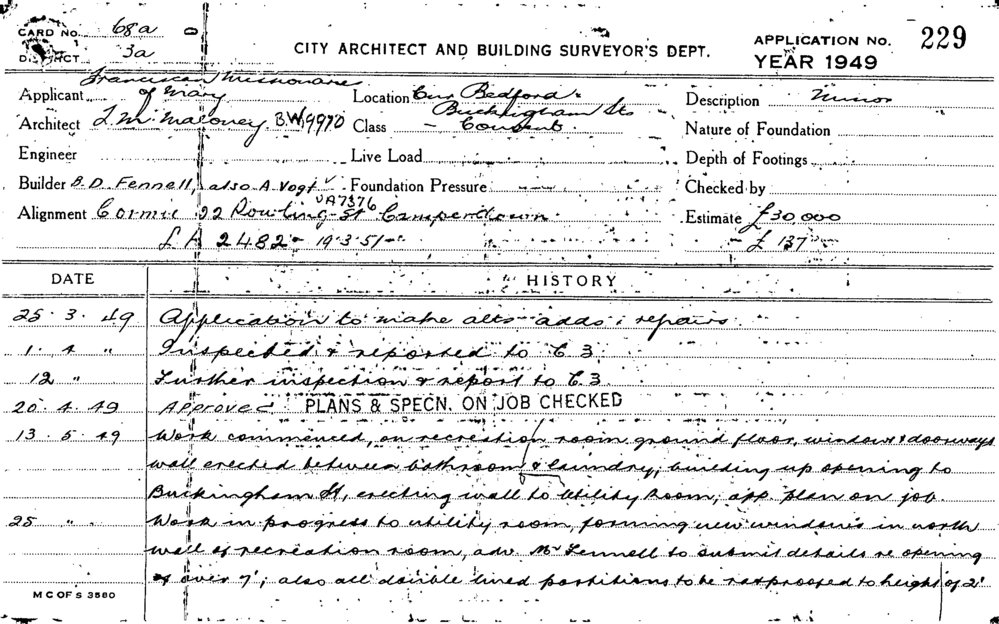 CARD No. 68a
DISTRICT 3a
CITY ARCHITECT AND BUILDING SURVEYOR'S DEPT.
APPLICATION No. 229
YEAR 1949
Franciscan Missionaries
Applicant of Mary
Location Cnr Bedford &
Buckingham Sts
Description Minor
Architect J. M. Maloney. BW9970
Class Convent.
Nature of Foundation
Engineer
Live Load
Depth of Footings
Builder B. D. Fennell, also A. Vogt
Foundation Pressure
Checked by
UA7376
Alignment 22 St Camperdown
Estimate £30,000
LA 2482 - 19.3.51
£137
DATE
HISTORY
25.3.49 Application to make alts adds & repairs.
1.4 " Inspected & reported to C3.
12 " Further inspection & report to C.3.
20.4.49 Approved PLANS & SPECN. ON JOB CHECKED
13.5.49 Work commenced, on recreation room ground floor, windows & doorways
wall erected between bathroom & laundry, building up opening to
Buckingham St, erecting wall to Utility Room, app. plan on job.
25 " Work in progress to utility room, forming new windows in north
wall of recreation room, adv. Mr Fennell to submit details re opening
of over 7', also all double lined partitions to be ratproofed to height of 2'
M C OF S 3580